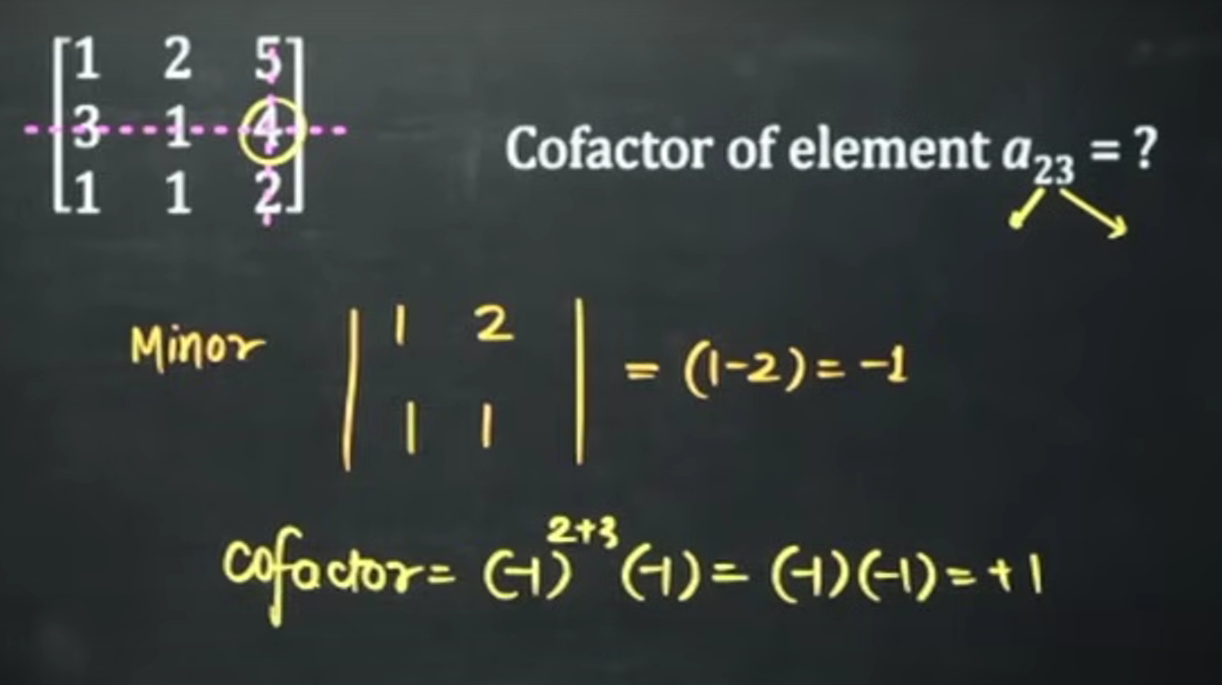 [1 2 5]
[3 1 4]
[1 1 2]
Cofactor of element a₂₃ = ?
Minor | 1 2 |
| 1 1 | = (1-2) = -1
Cofactor = (-1)²⁺³ (-1) = (-1)(-1) = +1